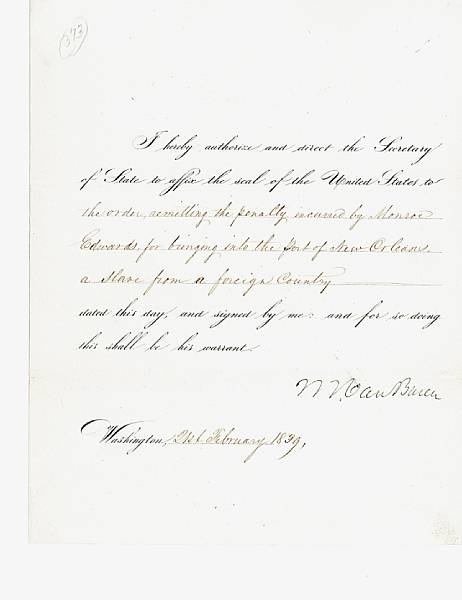 373
I hereby authorize and direct the Secretary
of State to affix the seal of the United States to
the order, remitting the penalty incurred by Monroe
Edwards, for bringing into the Port of New Orleans.
a slave from a foreign Country
dated this day, and signed by me: and for so doing
this shall be his warrant.
M Van Buren
Washington, 21st February 1839,